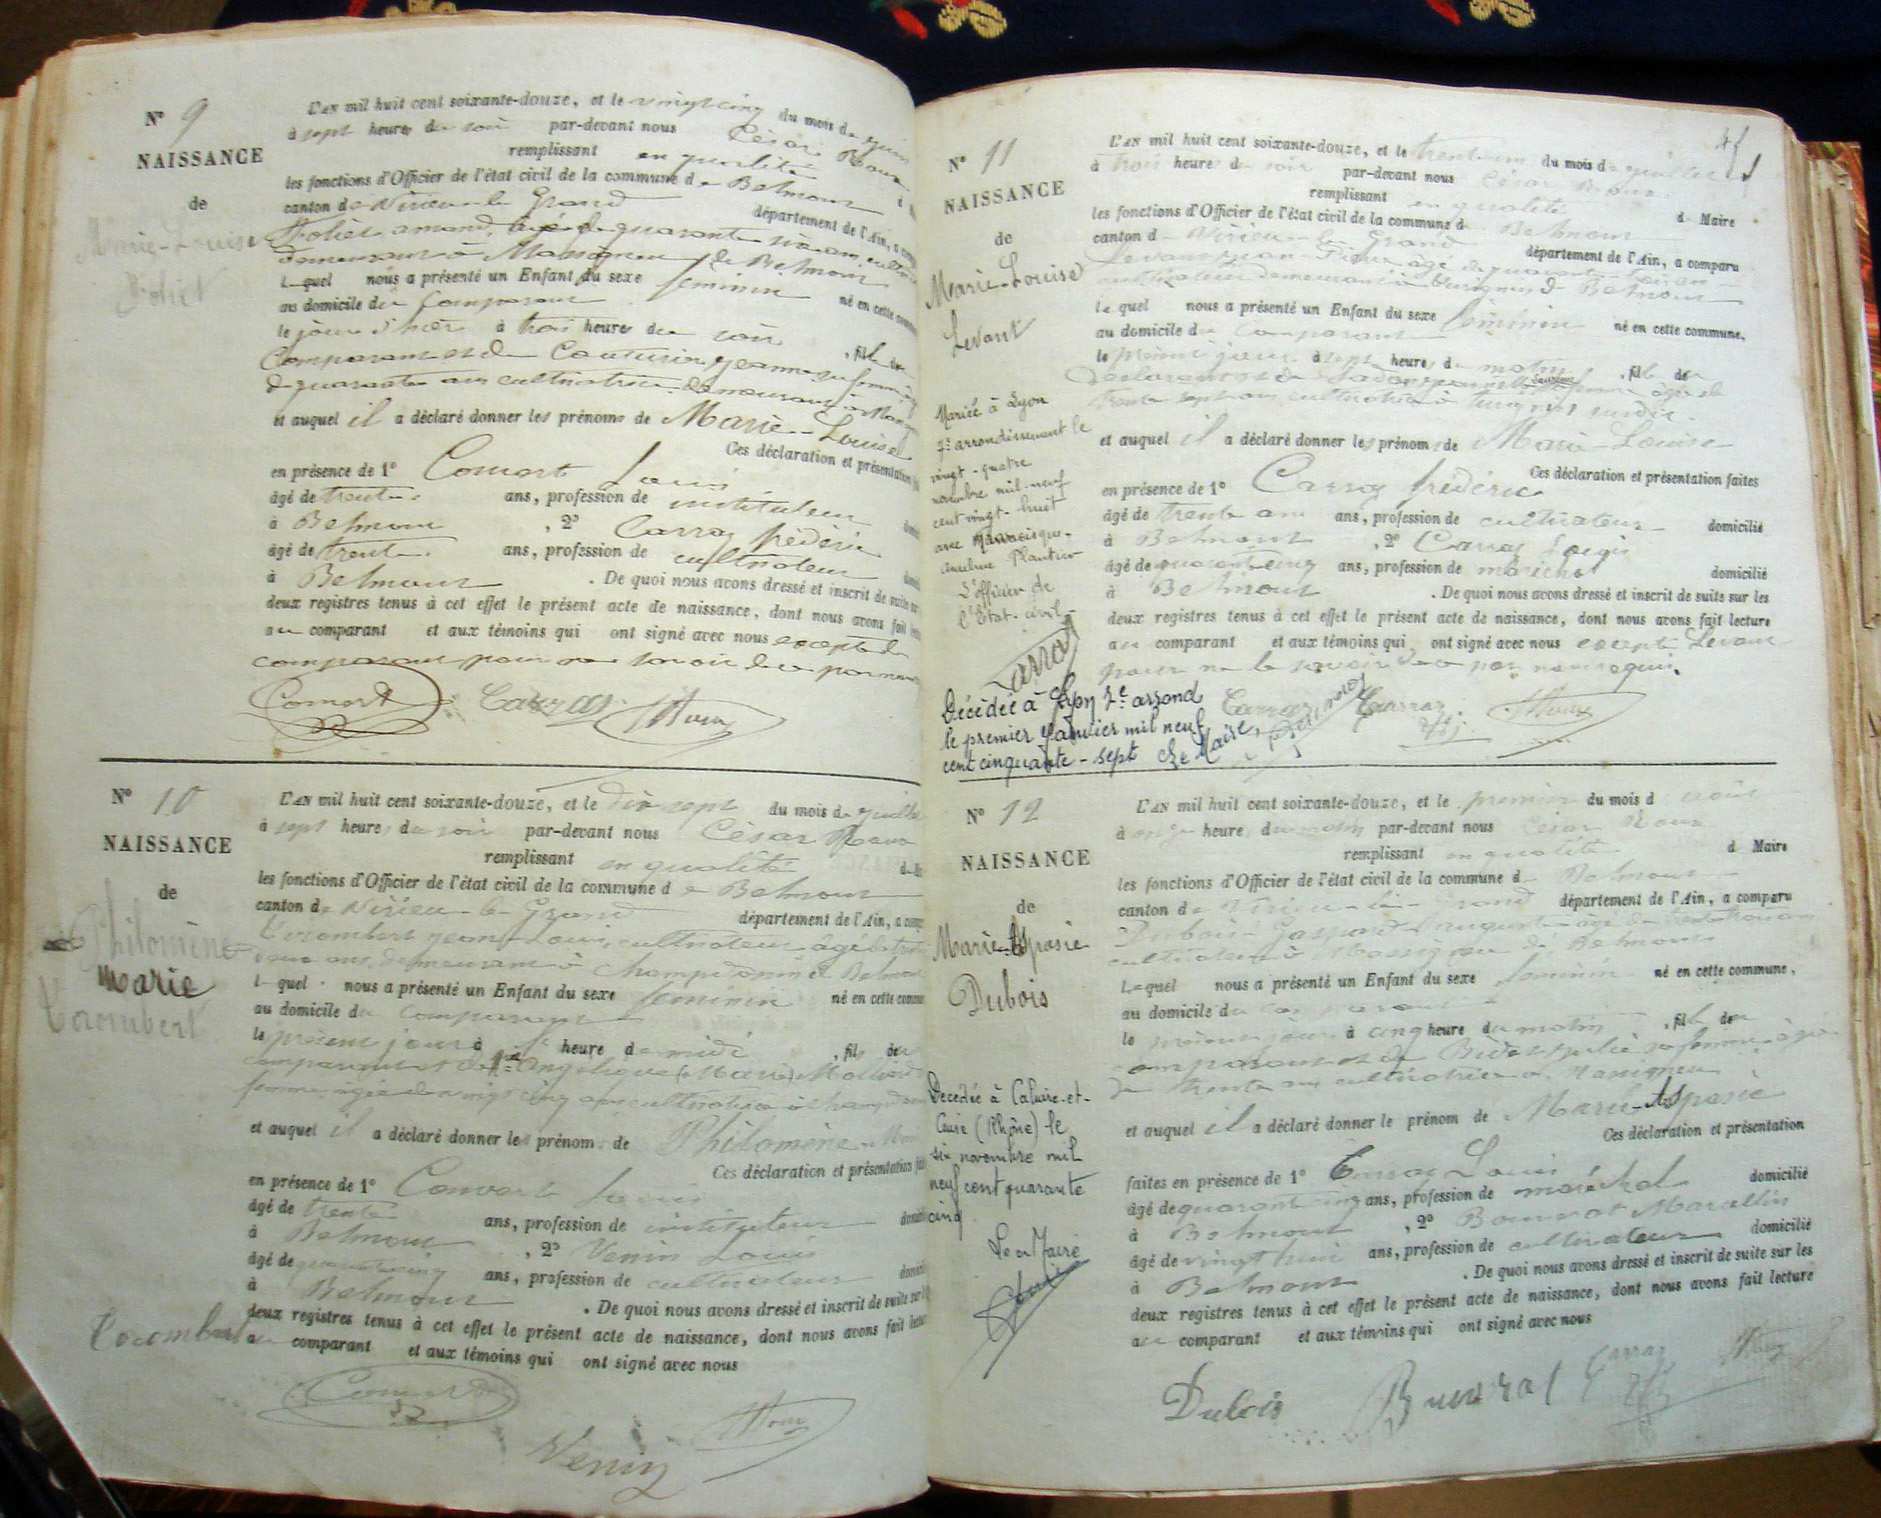 N° 9
NAISSANCE
de
Marie-Louise
L'AN mil huit cent soixante-douze, et le vingt cinq du mois de
à sept heures du soir par-devant nous César Roux
remplissant en qualité
les fonctions d'Officier de l'état civil de la commune de Belmont
canton de Virieu le Grand département de l'Ain, a
amand, âgé de quarante ans,
demeurant à Massignieu de Belmont
lequel nous a présenté un Enfant du sexe féminin né en cette
au domicile du comparant
le jour d'hier à trois heures du soir , fille du
comparant et de Couturier Jeanne sa femme
de quarante ans cultivatrice demeurant à
et auquel il a déclaré donner les prénoms de Marie-Louise
Ces déclaration et présentation
en présence de 1° Comert Louis
âgé de trente ans, profession de instituteur
à Belmont , 2° Carraz frédéric
âgé de trente ans, profession de cultivateur
à Belmont . De quoi nous avons dressé et inscrit de suite
deux registres tenus à cet effet le présent acte de naissance, dont nous avons fait
au comparant et aux témoins qui ont signé avec nous excepté le
comparant pour ne savoir de ce par nous
Carraz Roux
N° 10
NAISSANCE
de
Philomène
Marie
L'AN mil huit cent soixante-douze, et le dix sept du mois de juillet
à sept heures du soir par-devant nous César Roux
remplissant en qualité
les fonctions d'Officier de l'état civil de la commune de Belmont
canton de Virieu-le-Grand département de l'Ain, a
Jean-Louis, cultivateur âgé de
ans, demeurant à Belmont
lequel nous a présenté un Enfant du sexe féminin né en cette
au domicile du comparant
le présent jour à heure de midi , fille du
comparant et de Angélique (Marie)
femme, âgée de vingt cinq ans cultivatrice à
et auquel il a déclaré donner les prénoms de Philomène
Ces déclaration et présentation
en présence de 1° Louis
âgé de trente ans, profession de instituteur
à Belmont , 2° Venin Louis
âgé de ans, profession de cultivateur
à Belmont . De quoi nous avons dressé et inscrit de suite
deux registres tenus à cet effet le présent acte de naissance, dont nous avons fait
au comparant et aux témoins qui ont signé avec nous
Roux
Venin
N° 11
NAISSANCE
de
Marie-Louise
Levant
Mariée à Lyon
7e arrondissement le
vingt-quatre
novembre mil-neuf
cent vingt-huit
avec
Plantier
L'officier de
l'Etat-civil
Décédée à Lyon arrond
le premier Janvier mil neuf
cent cinquante-sept Le Maire,
L'AN mil huit cent soixante-douze, et le trente un du mois de juillet
à trois heures du soir par-devant nous César Roux
remplissant en qualité de Maire
les fonctions d'Officier de l'état civil de la commune de Belmont
canton de Virieu-le-Grand département de l'Ain, a comparu
Levant Jean- âgé de quarante ans
cultivateur demeurant à de Belmont
lequel nous a présenté un Enfant du sexe féminin né en cette commune,
au domicile du comparant
le même jour à sept heures du matin , fille du
déclarant et de femme âgée de
trente sept ans cultivatrice à
et auquel il a déclaré donner les prénoms de Marie-Louise
Ces déclaration et présentation faites
en présence de 1° Carraz frédéric
âgé de trente ans ans, profession de cultivateur domicilié
à Belmont , 2° Carraz Louis
âgé de quarante cinq ans, profession de maréchal domicilié
à Belmont . De quoi nous avons dressé et inscrit de suite sur les
deux registres tenus à cet effet le présent acte de naissance, dont nous avons fait lecture
au comparant et aux témoins qui ont signé avec nous excepté Levant
pour ne le savoir de ce par nous requis.
Carraz Carraz Roux
N° 12
NAISSANCE
de
Marie-Aspasie
Dubois
Décédée à Caluire-et-
Cuire (Rhône) le
six novembre mil
neuf cent quarante
cinq
Le Maire
L'AN mil huit cent soixante-douze, et le premier du mois d août
à onze heures du matin par-devant nous César Roux
remplissant en qualité d Maire
les fonctions d'Officier de l'état civil de la commune de Belmont
canton de Virieu-le-Grand département de l'Ain, a comparu
Dubois Gaspard auguste âgé de trente trois ans
cultivateur à Massignieu de Belmont
lequel nous a présenté un Enfant du sexe féminin né en cette commune,
au domicile du comparant
le même jour à cinq heures du matin , fille du
comparant et de Bidet Julie sa femme âgée
de trente ans cultivatrice à Massignieu
et auquel il a déclaré donner le prénom de Marie-Aspasie
Ces déclaration et présentation
faites en présence de 1° Carraz Louis domicilié
âgé de quarante cinq ans, profession de maréchal
à Belmont , 2° Marcellin domicilié
âgé de vingt huit ans, profession de cultivateur
à Belmont . De quoi nous avons dressé et inscrit de suite sur les
deux registres tenus à cet effet le présent acte de naissance, dont nous avons fait lecture
au comparant et aux témoins qui ont signé avec nous
Dubois Carraz Roux